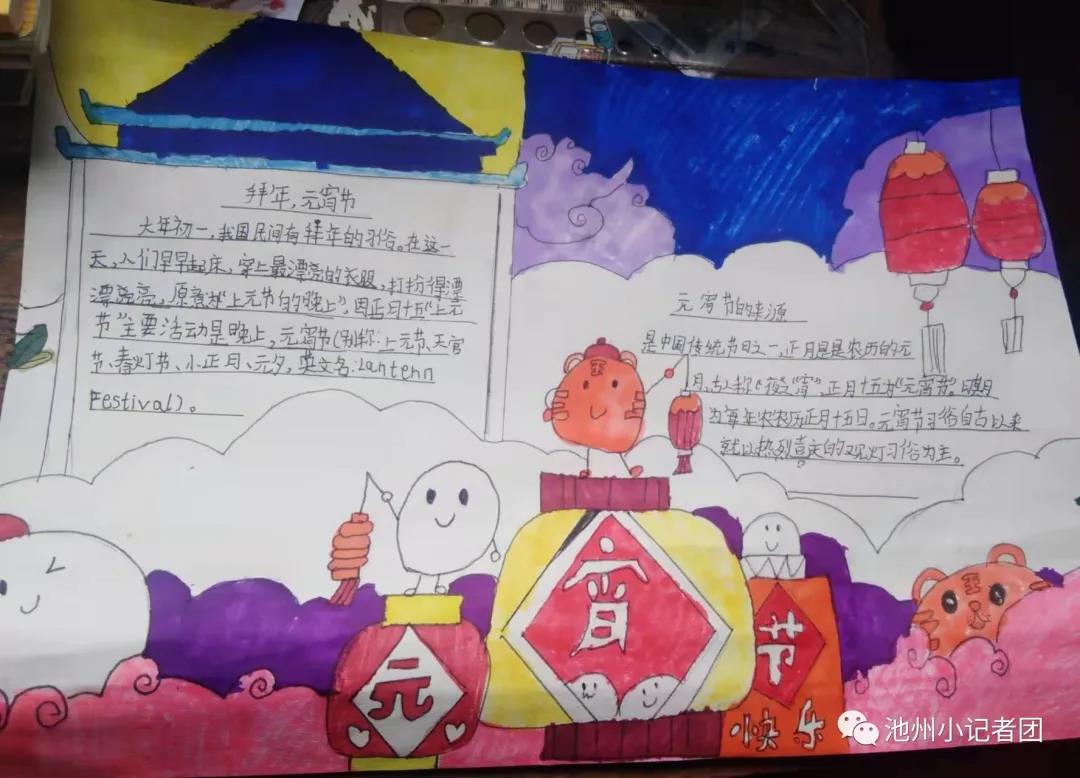 拜年,元宵节
大年初一,我国民间有拜年的习俗。在这一
天,人们早早起床,穿上最漂亮的衣服,打扮得漂
漂亮亮,原意为"上元节的晚上",因正月十五"上元
节"主要活动是晚上,元宵节(别称:上元节、天官
节、春灯节、小正月、元夕,英文名:Lantenn
Festival)。
元宵节的来源
是中国传统节日之一,正月是是农历的元
月,古人称"夜"为"宵",正月十五为"元宵节"日期
为每年农农历正月十五日。元宵节习俗自古以来
就以热烈喜庆的观灯习俗为主。
王
王
元
宵
节
快乐
池州小记者团